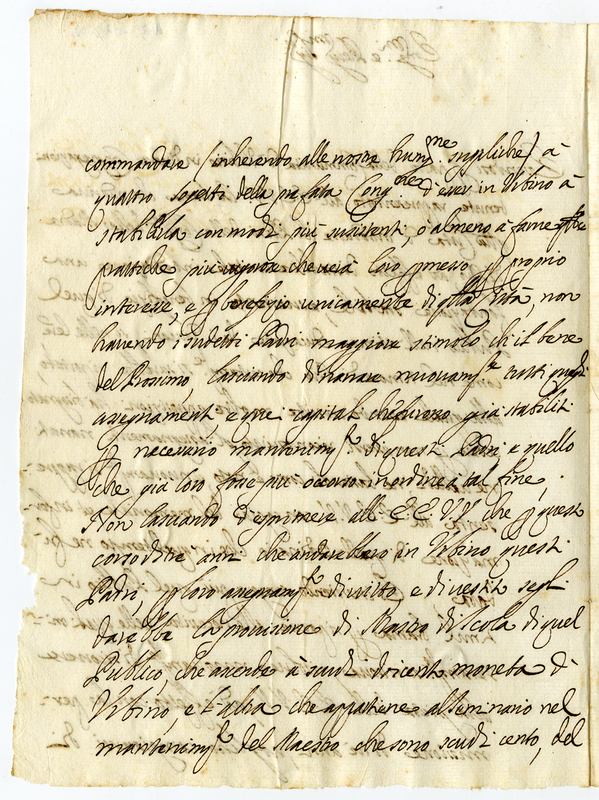 commandare (inherendo alle nostre hum.me suppliche) à
quattro sogetti della prefata Cong.ne d'esser in Urbino à
stabilirla con modi più sussistenti, ò almeno à farne
prattiche più vigorose che verà loro pmesso p proprio
interesse, e p benefizio unicamente di qlla Città, non
havendo i sudetti Padri maggiore stimolo, ch'il bene
del Prossimo, lasciando di narrare nuovam.te tutti quegli
assegnamenti, e que capitali che furono già stabiliti
p necessario mantenim.to di questi Padri e quello
che già loro fosse più occorso in ordine à tal fine.
Non lasciando d'esprimere all' EE. VV. che p questo
corso di tre anni che andarebbero in Urbino questi
Padri, p loro assegnam.to di vitto, e di vestito segli
darebbe la provisione di Mastro di Scola di quel
Publico, che ascende à scudi dicento moneta di
Urbino, e l'altra che appartiene al Seminario nel
mantenim.to del Maestro che sono scudi cento, del